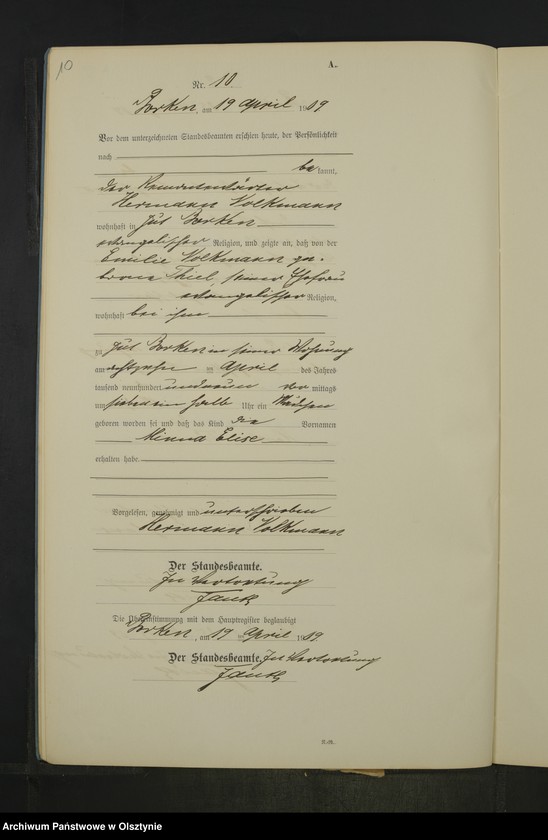 10
A.
Nr. 10.
Borken am 19 April 1909
Vor dem unterzeichneten Standesbeamten erschien heute, der Persönlichkeit
nach
bekannt,
der
Hermann Volkmann
wohnhaft in Gut Borken
evangelischer Religion, und zeigte an, daß von der
Emilie Volkmann ge-
borene Thiel, seiner Ehefrau
evangelischer Religion,
wohnhaft bei ihm
zu Gut Borken in seiner Wohnung
am achtzehn ten April des Jahres
tausend neunhundert und neun mittags
um sieben ein halb Uhr ein Mädchen
geboren worden sei und daß das Kind die Vornamen
Minna Elise
erhalten habe
Vorgelesen, genehmigt und unterschrieben
Hermann Volkmann
Der Standesbeamte.
In Vertretung
Die Übereinstimmung mit dem Hauptregister beglaubigt
Borken, am 19 ten April 1909
Der Standesbeamte. In Vertretung
Archiwum Państwowe w Olsztynie